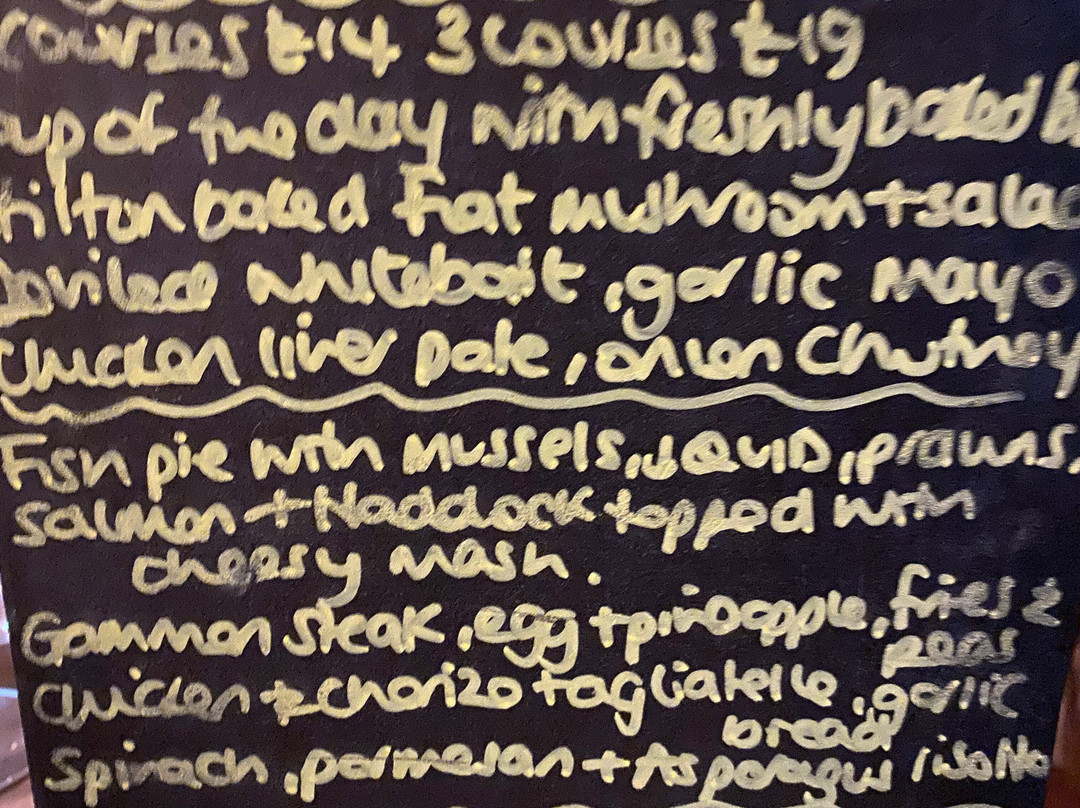 courses £14 3 courses £19
oup of the day with freshly baked b
tilton baked flat mushroom + salad
Deviled whitebait, garlic mayo
Chicken liver pate, onion chutney
Fish pie with mussels, squid, prawns,
salmon + Haddock topped with
cheesy mash.
Gammon steak, egg + pineapple, fries &
peas
Chicken & chorizo tagliatelle, garlic
bread
Spinach, parmesan + Asparagus risotto